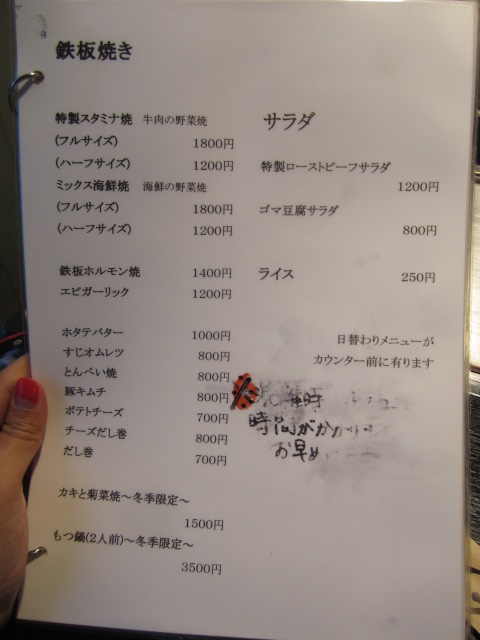 鉄板焼き
特製スタミナ焼 牛肉の野菜焼
(フルサイズ) 1800円
(ハーフサイズ) 1200円
ミックス海鮮焼 海鮮の野菜焼
(フルサイズ) 1800円
(ハーフサイズ) 1200円
鉄板ホルモン焼 1400円
エビガーリック 1200円
ホタテバター 1000円
すじオムレツ 800円
とんぺい焼 800円
豚キムチ 800円
ポテトチーズ 700円
チーズだし巻 800円
だし巻 700円
カキと菊菜焼～冬季限定～
1500円
もつ鍋(2人前)～冬季限定～
3500円
サラダ
特製ローストビーフサラダ
1200円
ゴマ豆腐サラダ
800円
ライス 250円
日替わりメニューが
カウンター前に有ります
時間がかか
お早め